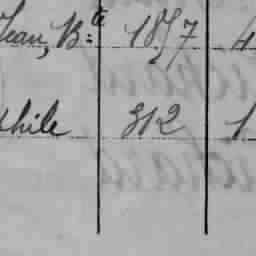 Jean, B.te 1857 4
chile 312 1